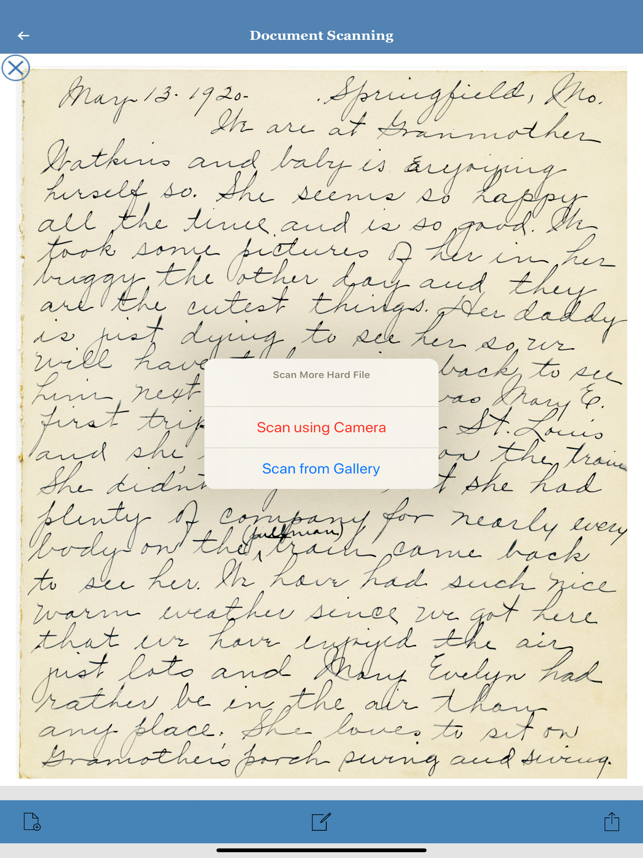 Document Scanning
May 13. 1920. Springfield, Mo.
We are at Granmother
Watkins and baby is enjoying
herself so. She seems so happy
all the time and is so good. We
took some pictures of her in her
buggy the other day and they
are the cutest things. Her daddy
is just dying to see her so, we
will have back to see
him next was Mary E.
first trip St. Louis
and she on the train
She didn't she had
plenty of company for nearly every
body on the (pullman) train came back
to see her. We have had such nice
warm weather since we got here
that we have enjoyed the air
just lots and Mary Evelyn had
rather be in the air than
any place. She loves to sit on
Gramother's porch swing and swing.
Scan More Hard File
Scan using Camera
Scan from Gallery